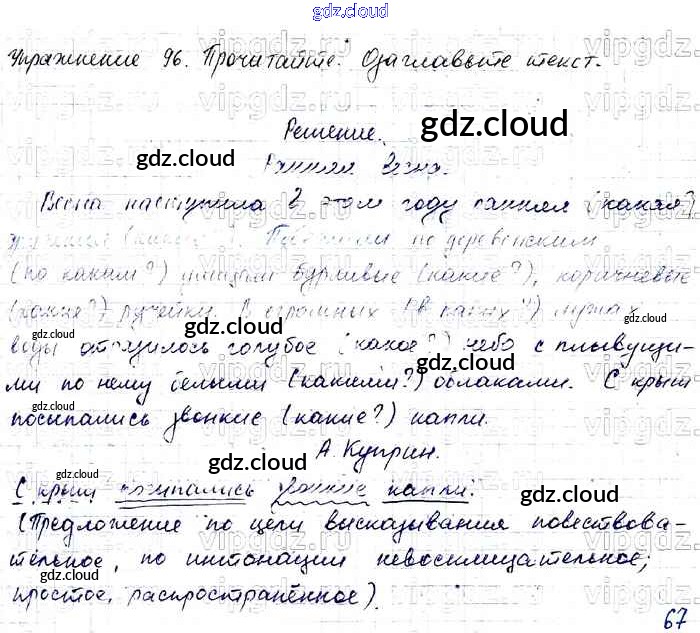 gdz.cloud
Упражнение 96. Прочитайте. Озаглавьте текст.
Решение.
gdz.cloud
gdz.cloud
Ранняя весна.
Весна наступила в этом году ранняя (какая?)
По деревенским
(по каким?) улицам бурливые (какие?), коричневые
(какие?) ручейки. В огромных (в каких?) лужах
gdz.cloud
gdz.cloud
воды отразилось голубое (какое?) небо с плывущи-
gdz.cloud
ми по нему белыми (какими?) облаками. С крыш
gdz.cloud
посыпались звонкие (какие?) капли.
А. Куприн.
gdz.cloud
gdz.cloud
С крыш посыпались звонкие капли.
(Предложение по цели высказывания повествова-
тельное, по интонации невосклицательное;
gdz.cloud
gdz.cloud
простое, распространённое).
67